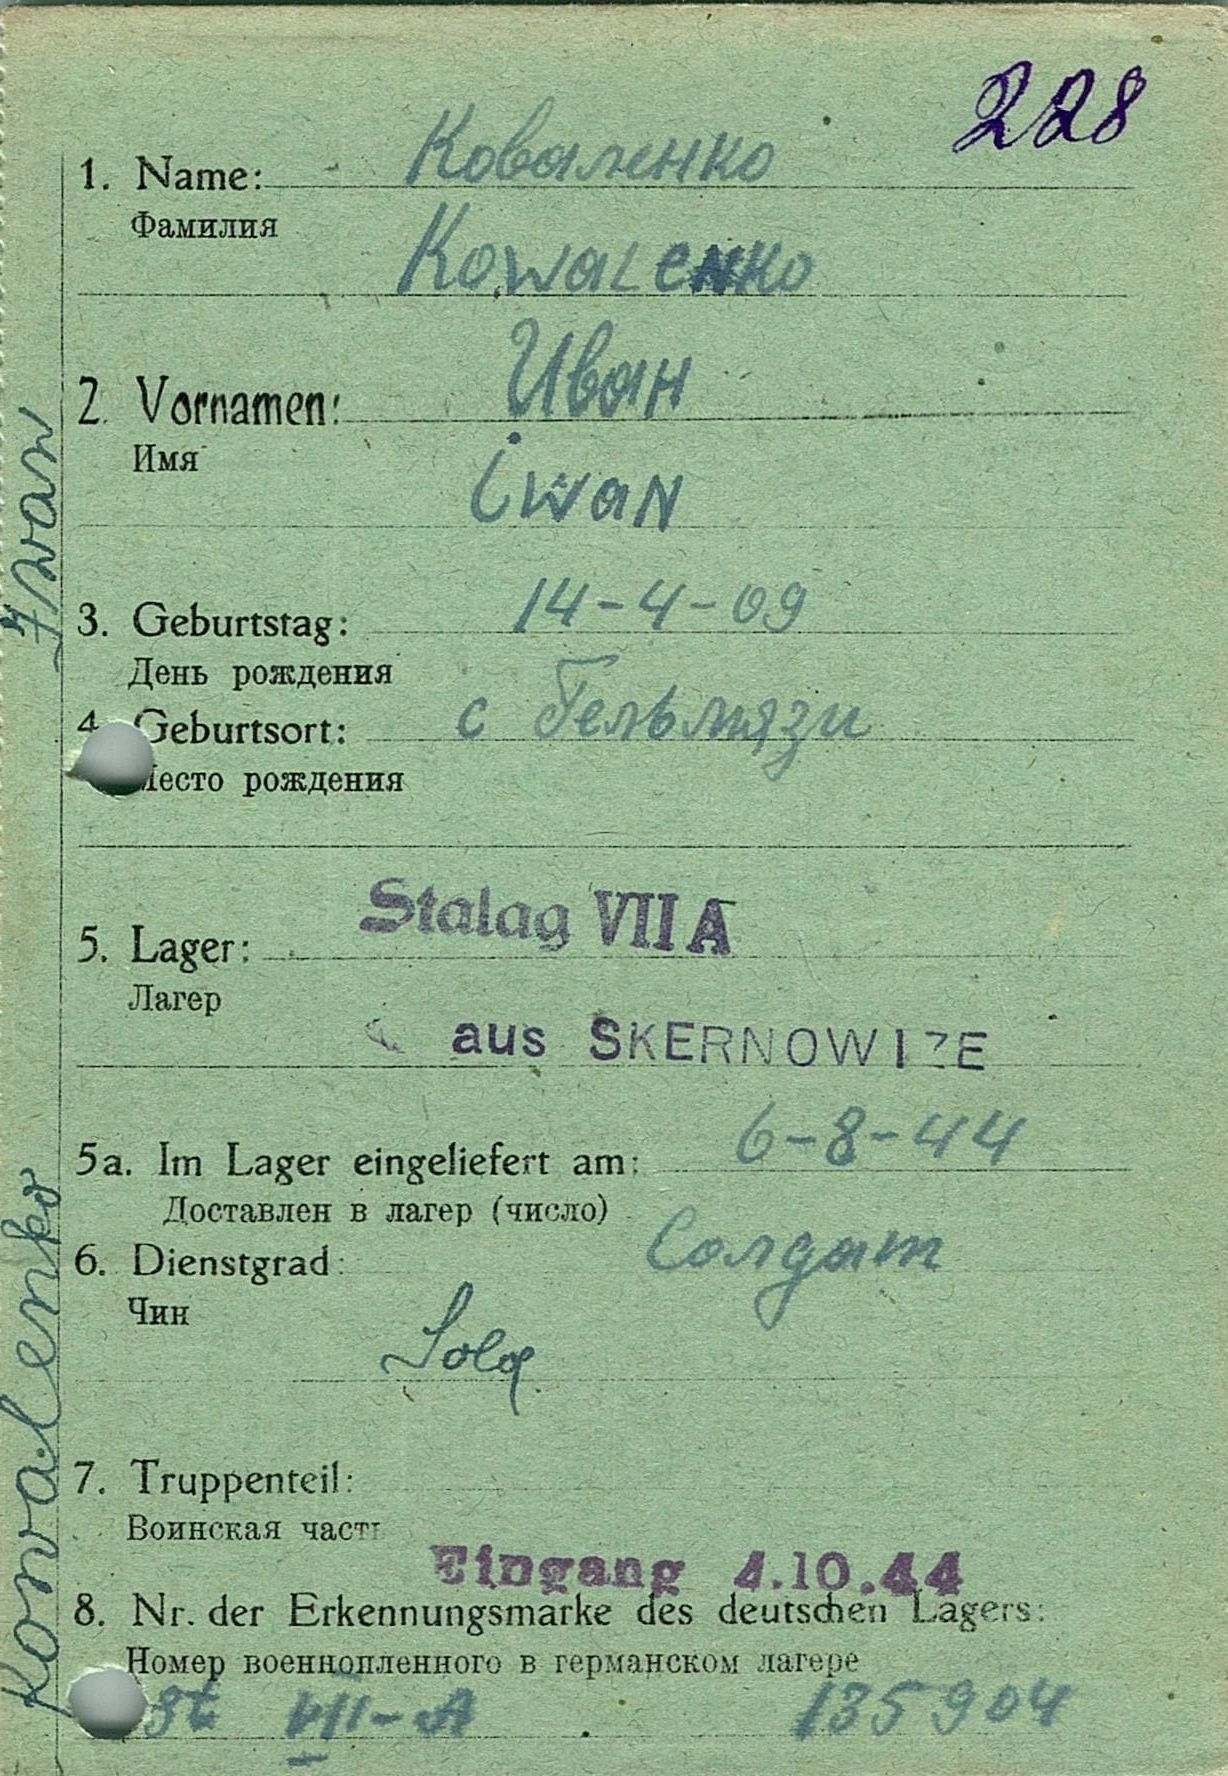 228
1. Name: Коваленко
Фамилия
Kowalenko
2. Vornamen: Иван
Имя
iwan
3. Geburtstag: 14-4-09
День рождения
4. Geburtsort: с Гельмязи
Место рождения
5. Lager: Stalag VII A
Лагер
aus SKERNOWIZE
5a. Im Lager eingeliefert am: 6-8-44
Доставлен в лагер (число)
6. Dienstgrad: Солдат
Чин
Sold.
7. Truppenteil:
Воинская часть
Eingang 4.10.44
8. Nr. der Erkennungsmarke des deutschen Lagers:
Номер военнопленного в германском лагере
St VII-A 135904
Kowalenko Iwan